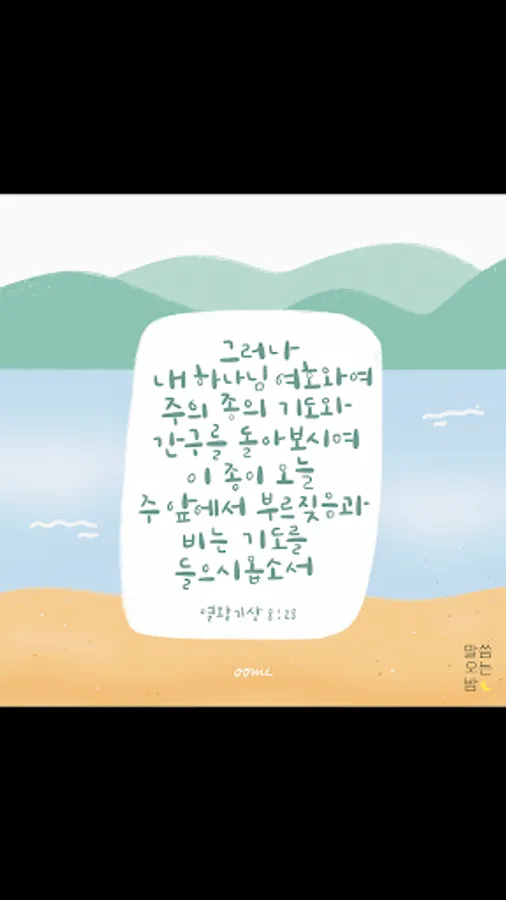 그러나
내 하나님 여호와여
주의 종의 기도와
간구를 돌아보시며
이 종이 오늘
주 앞에서 부르짖음과
비는 기도를
들으시옵소서
열왕기상 8:28
oomi
말씀
오는
밤